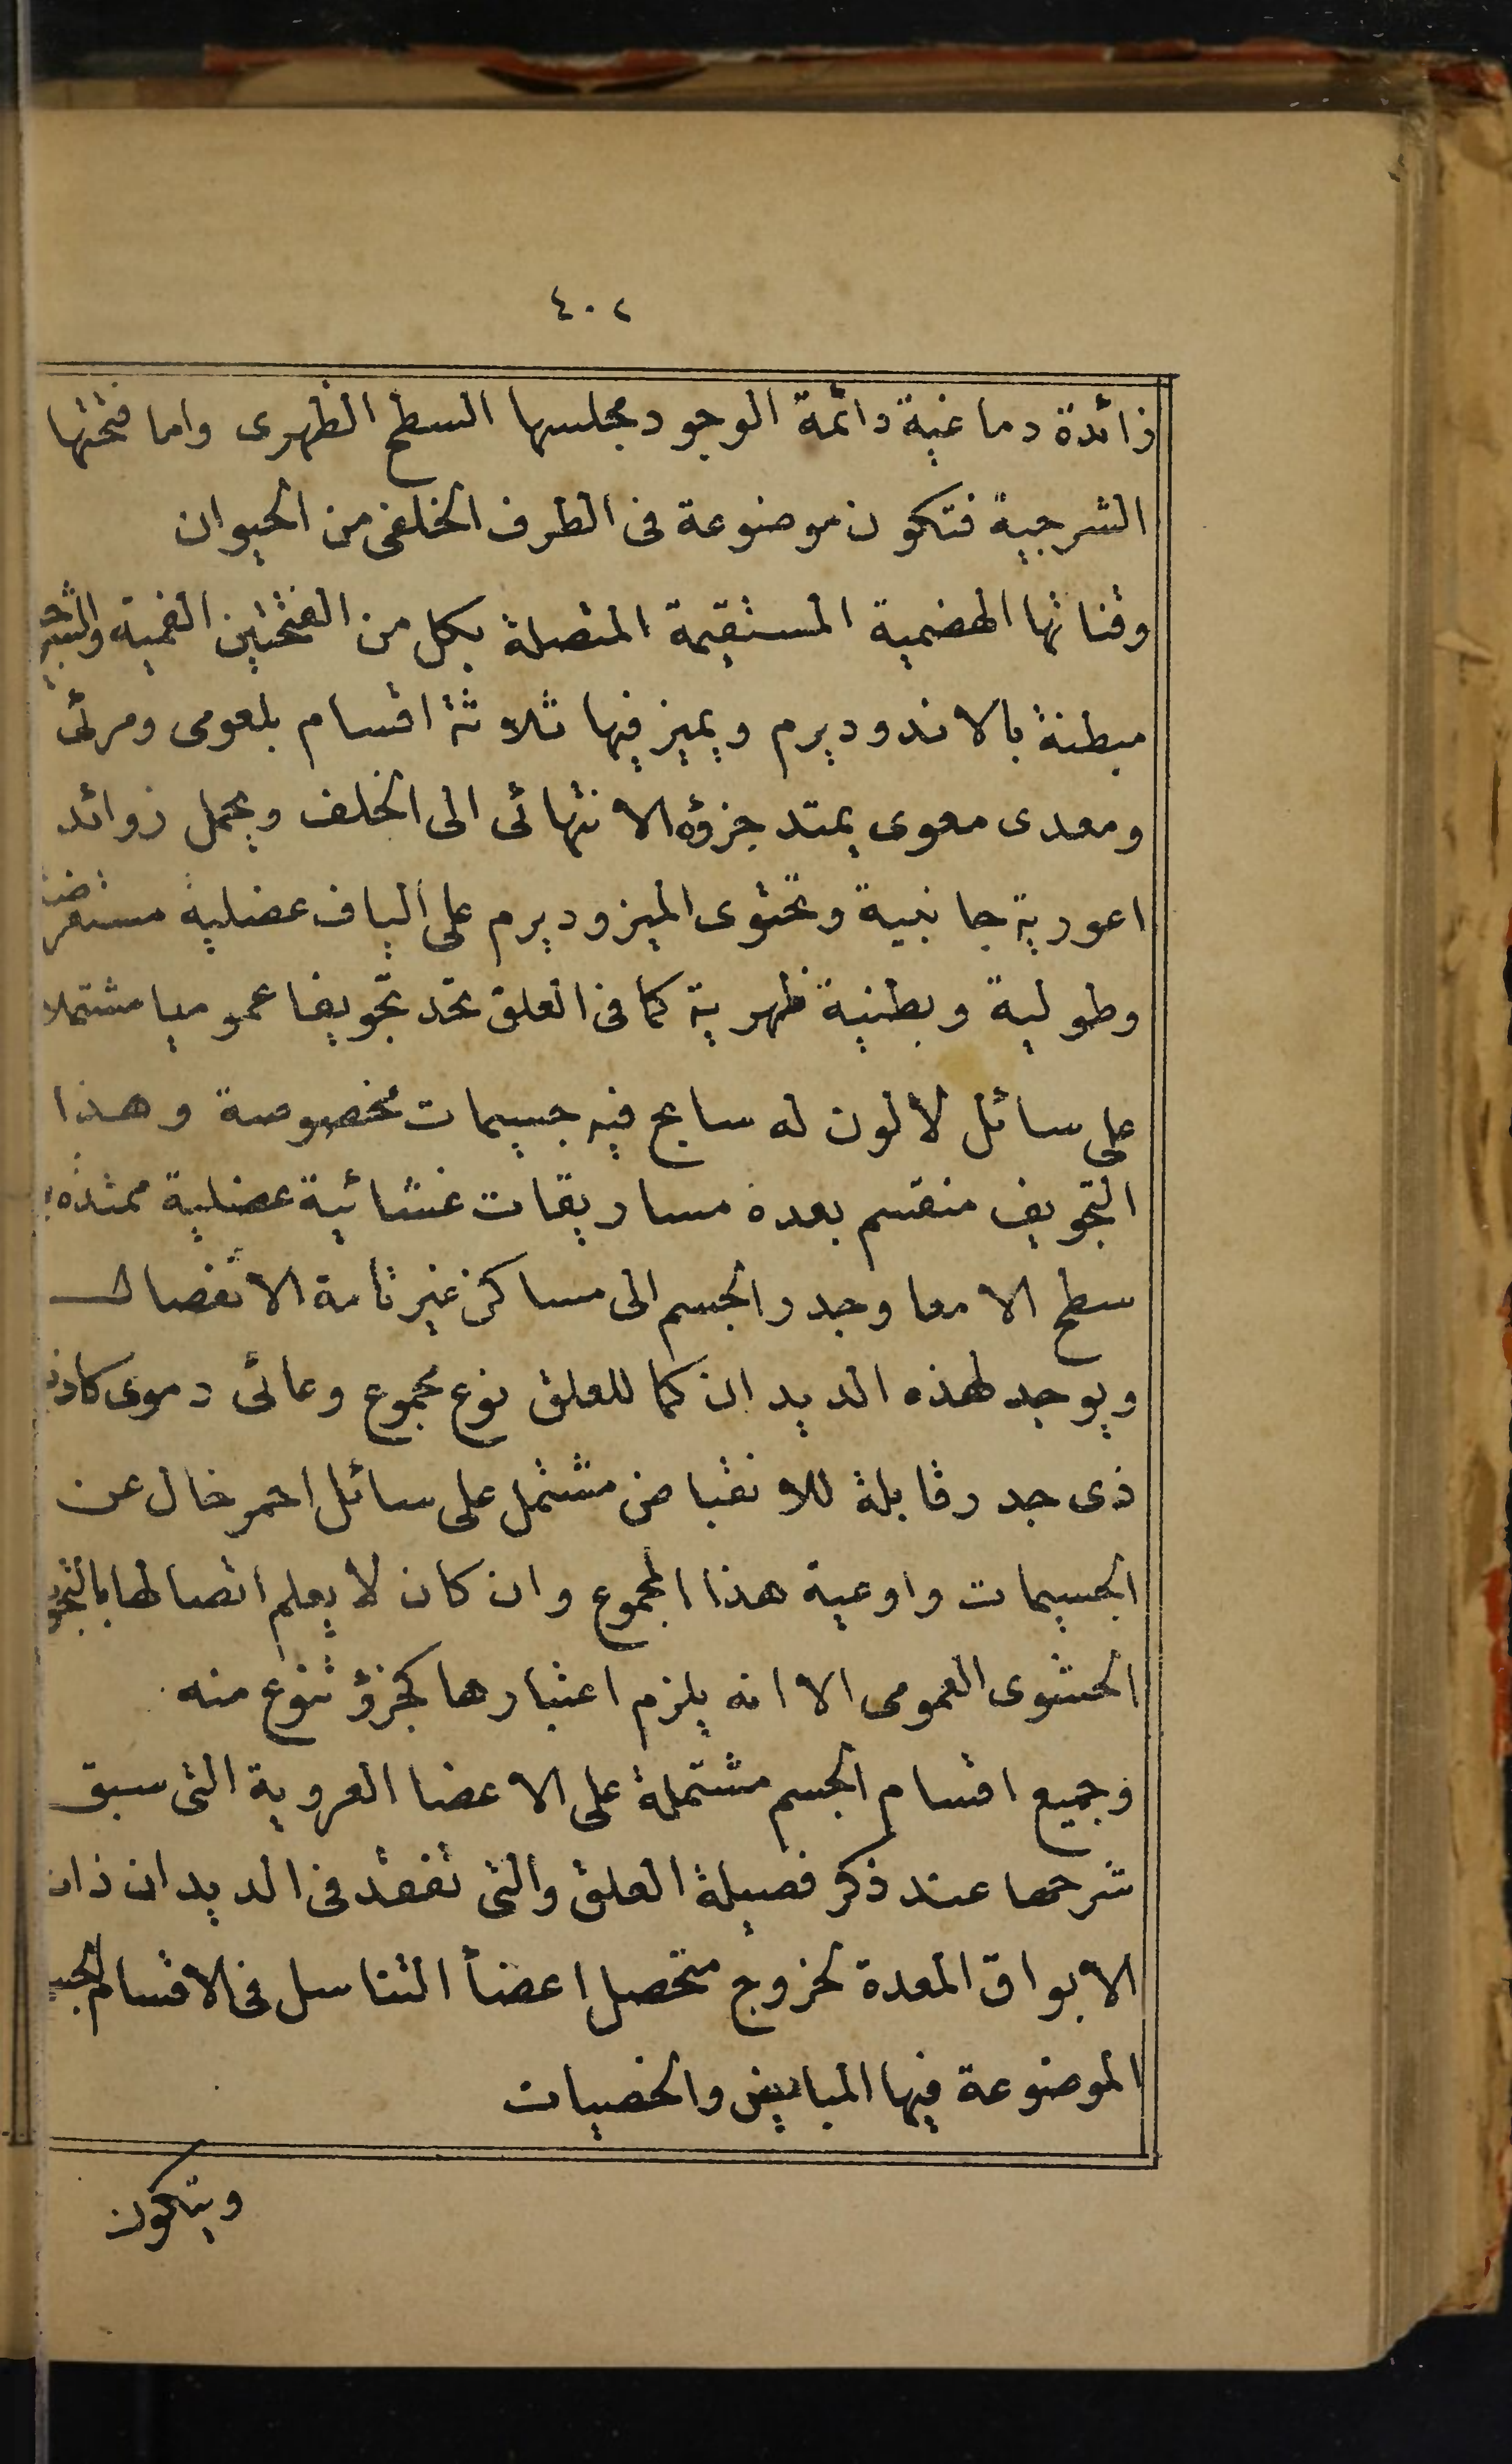 ٤٠٢
زائدة دماغية دائمة الوجود مجلسها السطح الظهرى واما فتحتها
الشرجية فتكون موضوعة فى الطرف الخلفى من الحيوان
وقناتها الهضمية المستقيمة المتصلة بكل من الفتحتين الفمية والشرجية
مبطنة بالاندوديرم ويميز فيها ثلاثة اقسام بلعومى ومرئى
ومعدى معوى يمتد جزؤه الانتهائى الى الخلف ويحمل زوائد
اعورية جانبية وتحتوى الميزوديرم على الياف عضلية مستعرضة
وطولية وبطنية ظهرية كما فى العلق تحد تجويفا عموميا مشتملا
على سائل لا لون له سابح فيه جسيمات مخصوصة وهذا
التجويف منقسم بعدة مساريقات غشائية عضلية ممتدة
سطح الامعا وجدر الجسم الى مساكن غير تامة الانفصال
ويوجد لهذه الديدان كما للعلق نوع مجموع وعائى دموى كاذب
ذى جدر قابلة للانقباض مشتمل على سائل احمر خال عن
الجسيمات واوعية هذا المجموع وان كان لا يعلم اتصالها بالتجو
الحشوى العمومى الا انه يلزم اعتبارها كجزؤ تنوع منه
وجميع اقسام الجسم مشتملة على الاعضا العروية التى سبق
شرحها عند ذكر فصيلة العلق والتى تفقد فى الديدان ذات
الابواق المعدة لخروج متحصل اعضأ التناسل فى الاقسام
الموضوعة فيها المبايض والخصيات
ويتكون